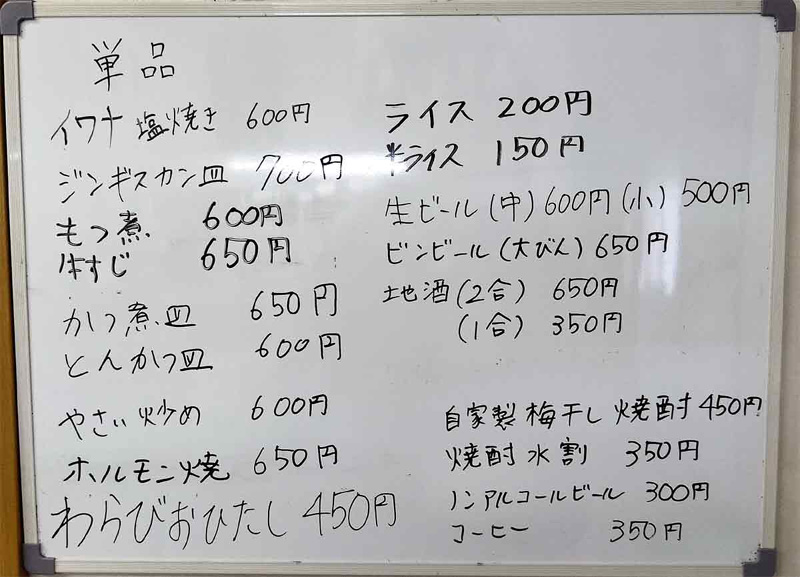 単品
イワナ 塩焼き 600円
ジンギスカン皿 700円
もつ煮 600円
牛すじ 650円
かつ煮皿 650円
とんかつ皿 600円
やさい炒め 600円
ホルモン焼 650円
わらびおひたし 450円
ライス 200円
半ライス 150円
生ビール(中)600円(小)500円
ビンビール(大びん)650円
地酒(2合) 650円
(1合) 350円
自家製梅干し焼酎450円
焼酎水割 350円
ノンアルコールビール 300円
コーヒー 350円